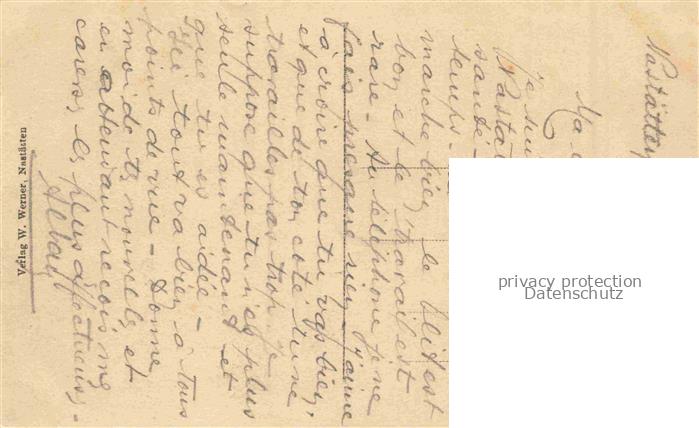 Nastätten
Ma
je suis
Nasta
santé
temps -
marche bien, le lit est
bon et le travail est
rare - Au téléphone je ne
fais presque rien - J'aime
à croire que tu vas bien,
et que de ton côté tu ne
travailles pas trop - je
suppose que tu n'es plus
seule maintenant et
que tu es aidée -
Ici tout va bien à tous
points de vue - Donne
moi de tes nouvelles et
en attendant reçois mes
caresses les plus affectueuses -
Verlag W. Werner, Nastätten
privacy protection
Datenschutz